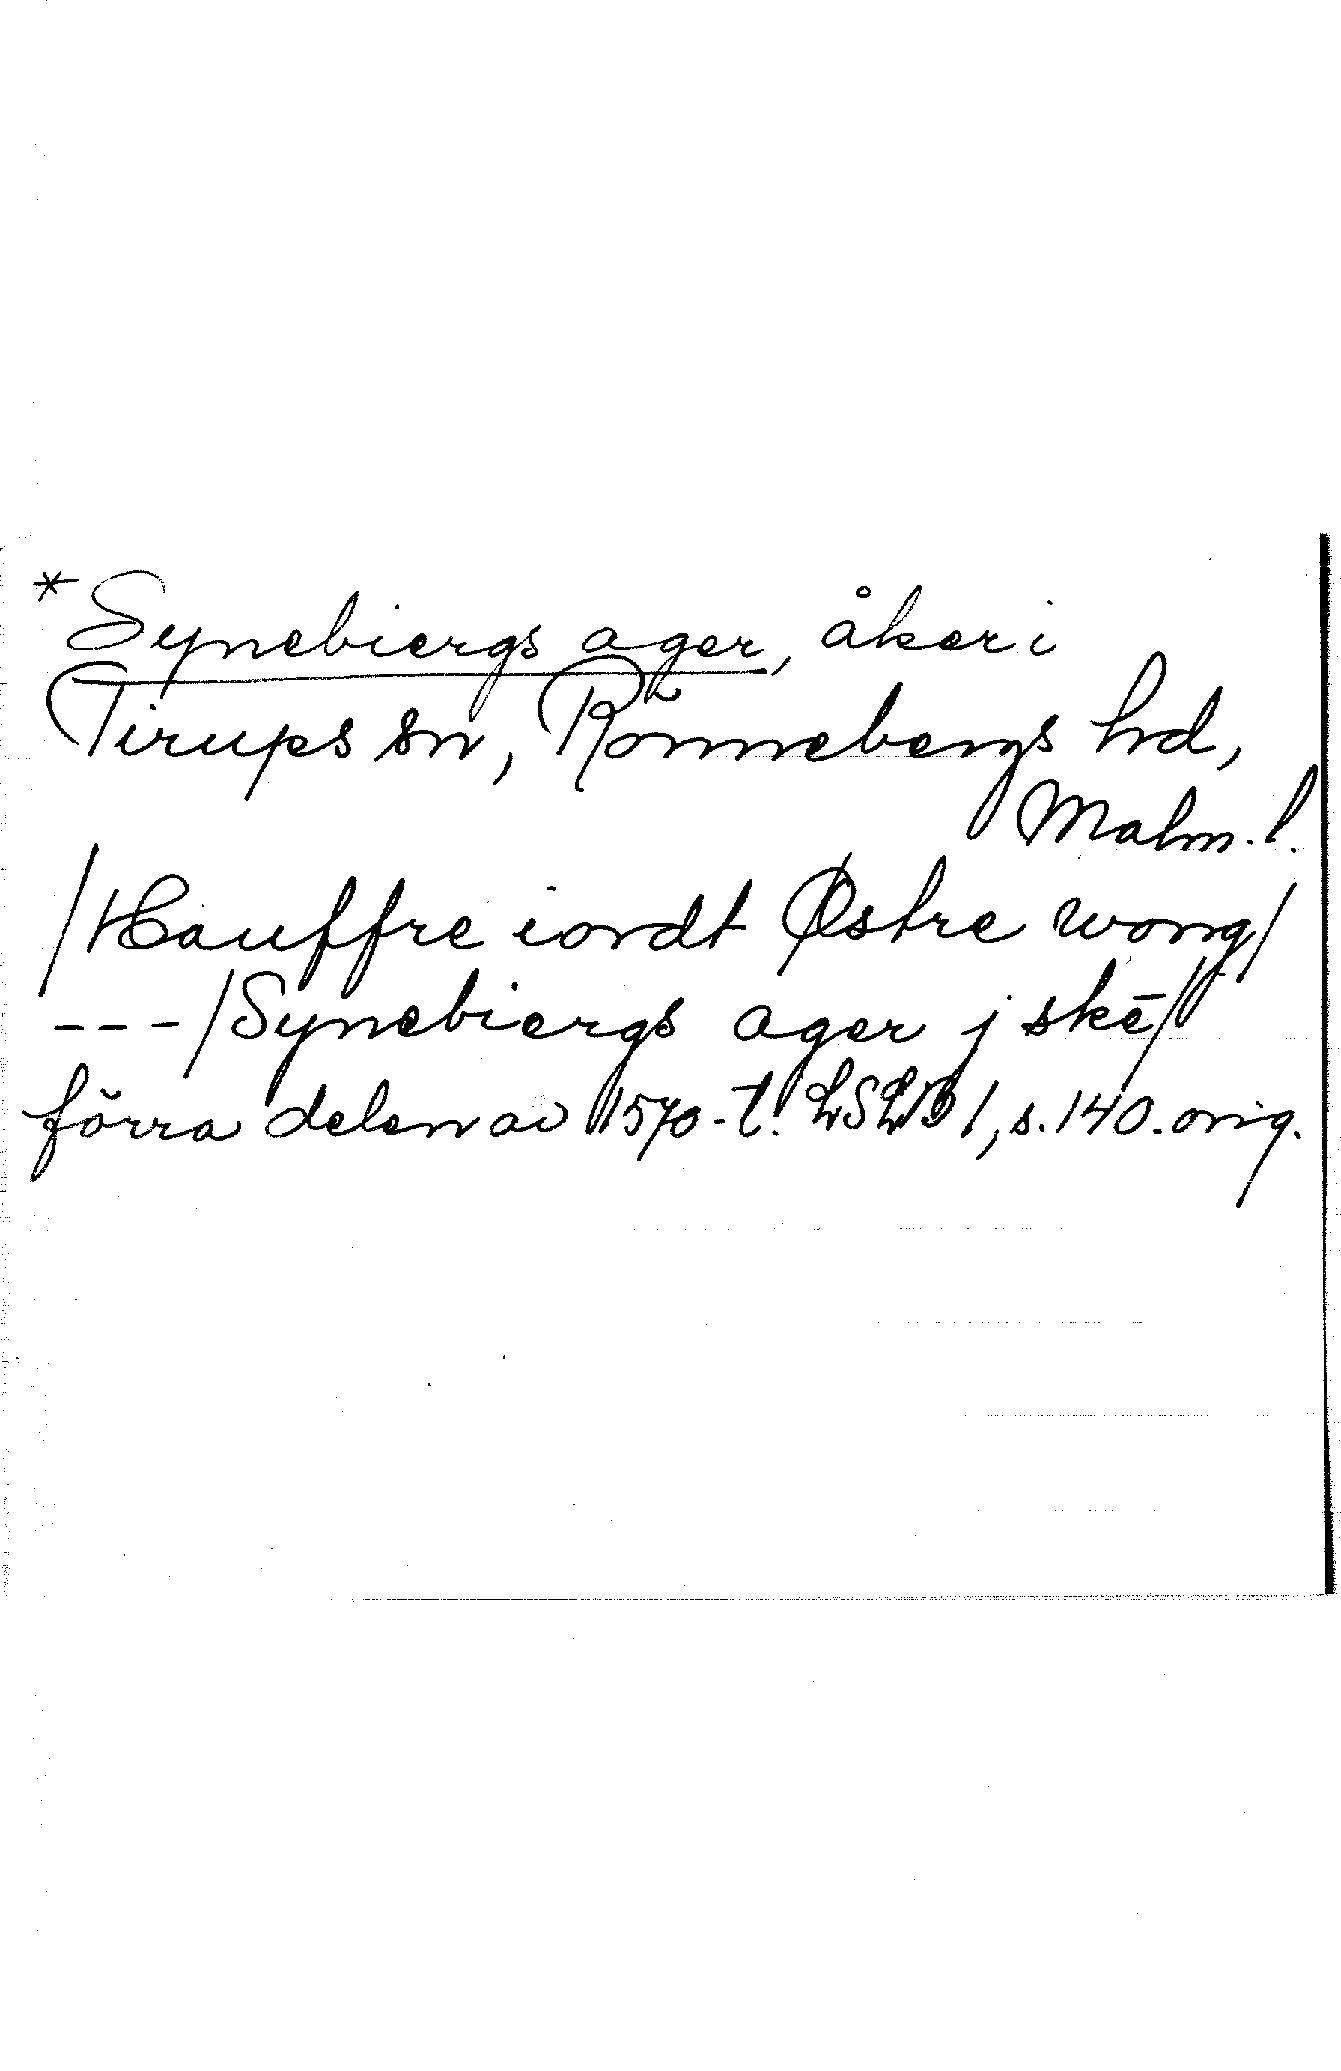 *Synebiergs ager, åker i
Tirups sn, Rönnebergs hd,
Malm. l.
/Hauffre iordt Østre wong/
---/Synebiergs ager j skē/
förra delen av 1570-t. LSLB 1, s. 140. orig.